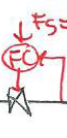 FSE
FC